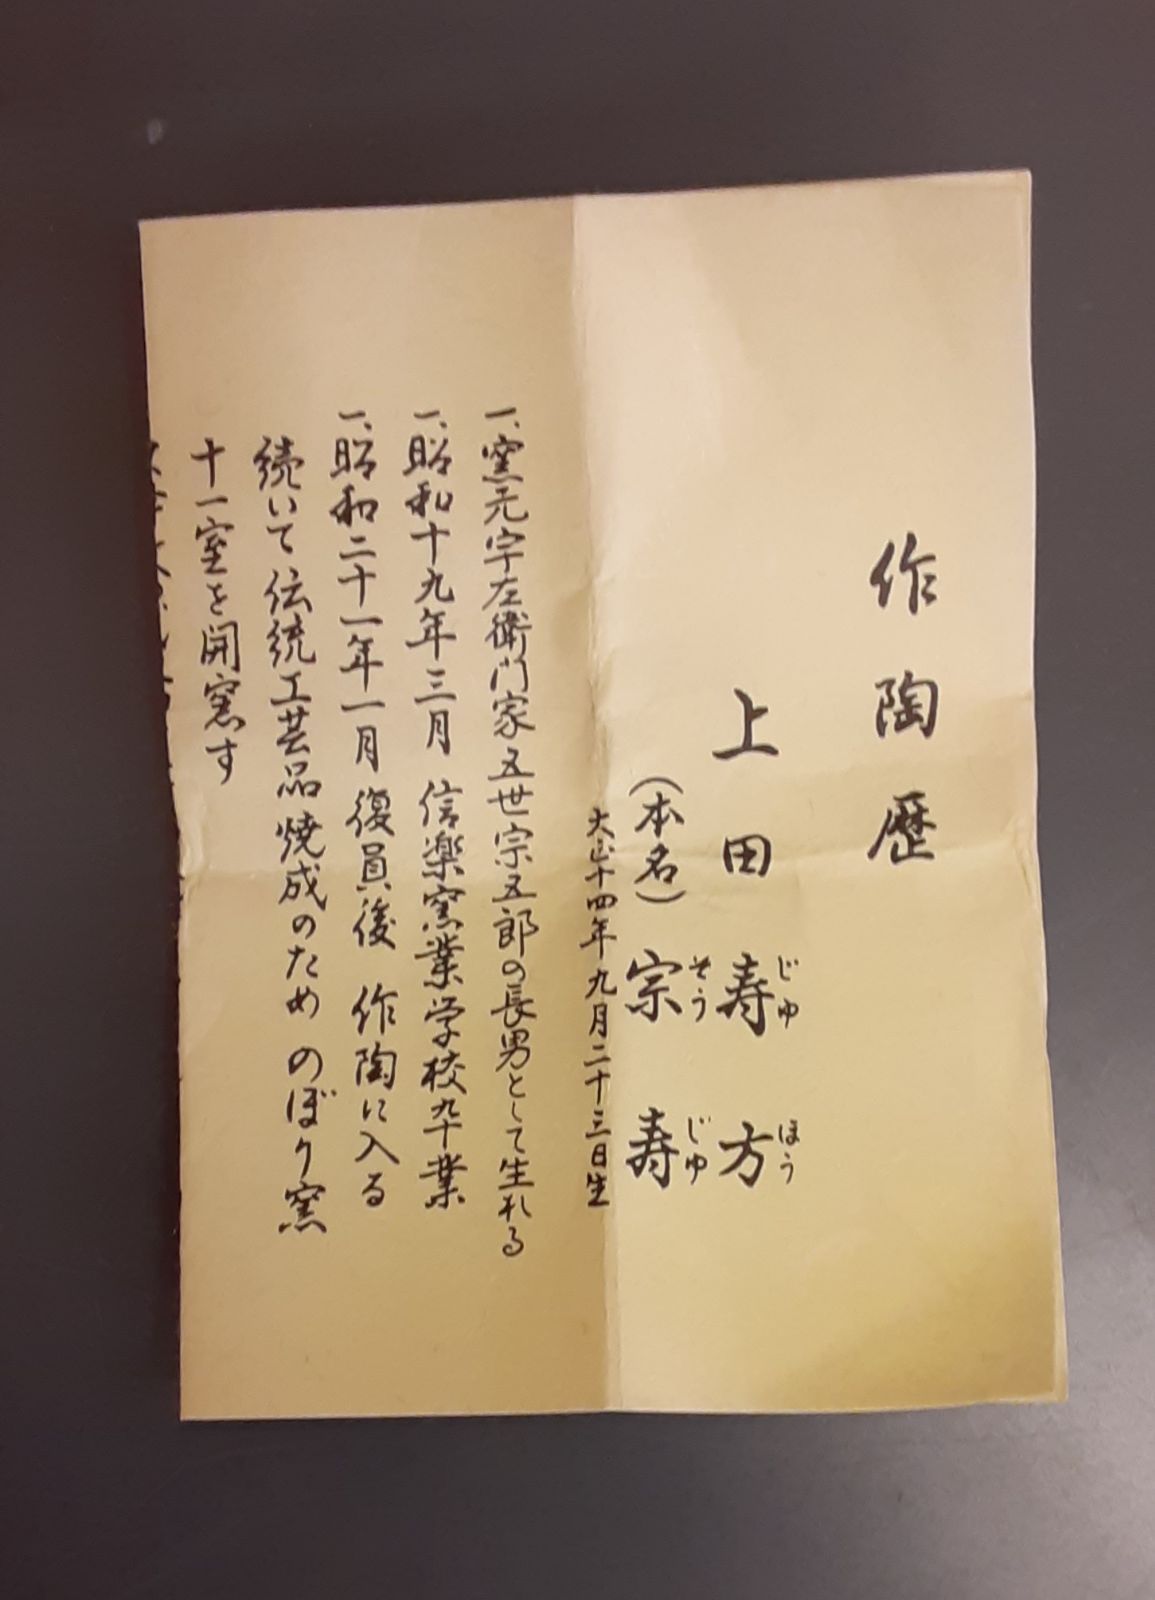 作陶歴
上田寿方
じゅほう
(本名)宗寿
そうじゅ
大正十四年九月二十三日生
一、窯元宇左衛門家五世宗五郎の長男として生れる
一、昭和十九年三月 信楽窯業学校卆業
一、昭和二十一年一月 復員後 作陶に入る
続いて伝統工芸品焼成のため のぼり窯
十一室を開窯す